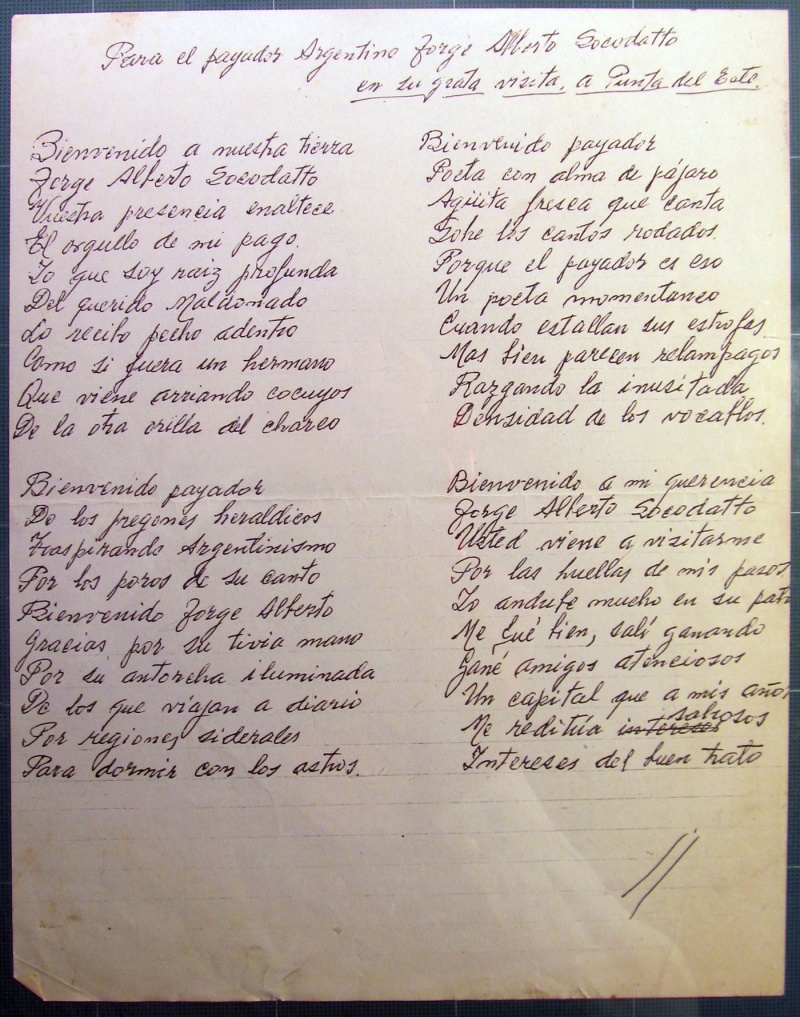 Para el payador Argentino Jorge Alberto Socodatto
en su grata visita, a Punta del Este.
Bienvenido a nuestra tierra
Jorge Alberto Socodatto
Vuestra presencia enaltece
El orgullo de mi pago.
Yo que soy raiz profunda
Del querido Maldonado
Lo recibo pecho adentro
Como si fuera un hermano
Que viene arriando cocuyos
De la otra orilla del charco
Bienvenido payador
De los pregones heraldicos
Traspirando Argentinismo
Por los poros de su canto
Bienvenido Jorge Alberto
Gracias por su tivia mano
Por su antorcha iluminada
De los que viajan a diario
Por regiones siderales
Para dormir con los astros.
Bienvenido payador
Poeta con alma de pájaro
Agüita fresca que canta
Sobre los cantos rodados.
Porque el payador es eso
Un poeta momentaneo
Cuando estallan sus estrofas
Mas bien parecen relampagos
Razgando la inusitada
Densidad de los vocablos.
Bienvenido a mi querencia
Jorge Alberto Socodatto
Usted viene a visitarme
Por las huellas de mis pasos
Yo anduve mucho en su patr
Me fué bien, salí ganando
Gané amigos atenciosos
Un capital que a mis años
Me reditúa intereses sabrosos
Intereses del buen trato